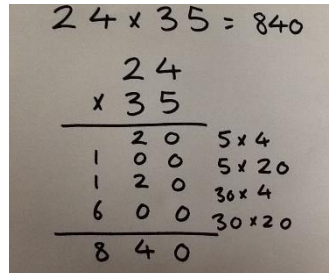 24 × 35 = 840
24
× 35
20 5 × 4
100 5 × 20
120 30 × 4
600 30 × 20
840